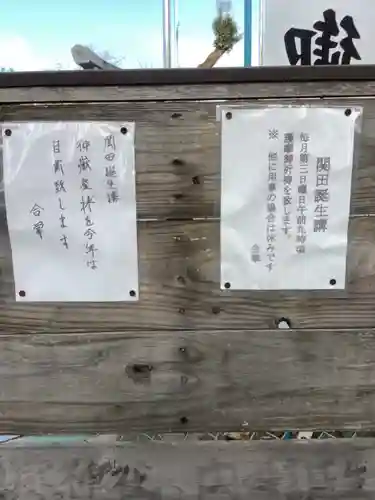 御
関田誕生講
毎月第二日曜日午前九時頃
護摩御祈祷を致します。
※ 他に用事の場合は休みです
合掌
関田誕生講
御歳暮祷を今年は
自粛致します
合掌